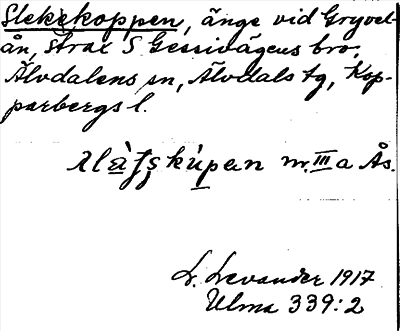 Slekskoppen, änge vid Gryvel-
ån, strax S Gessivägens bro.
Älvdalens sn, Älvdals tg, Kop-
parbergs l.
m. III a Ås.
L. Levander 1917
Ulma 339:2